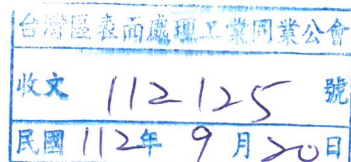 台灣區表面處理工業同業公會
收文 112125 號
民國 112年 9月20日